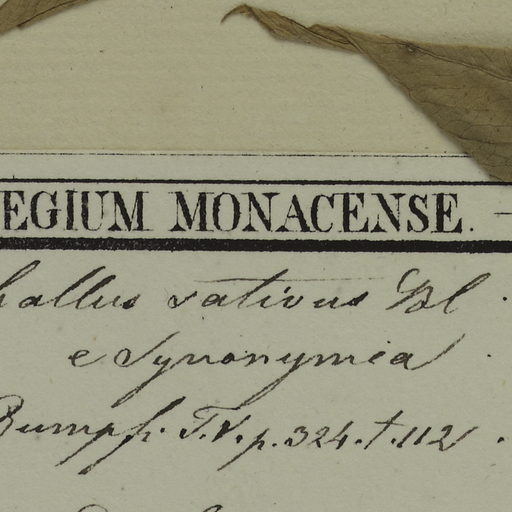 EGIUM MONACENSE. –
hallus sativus Bl.
e Synonymia
Rumpf. T.V. p. 324. t. 112.